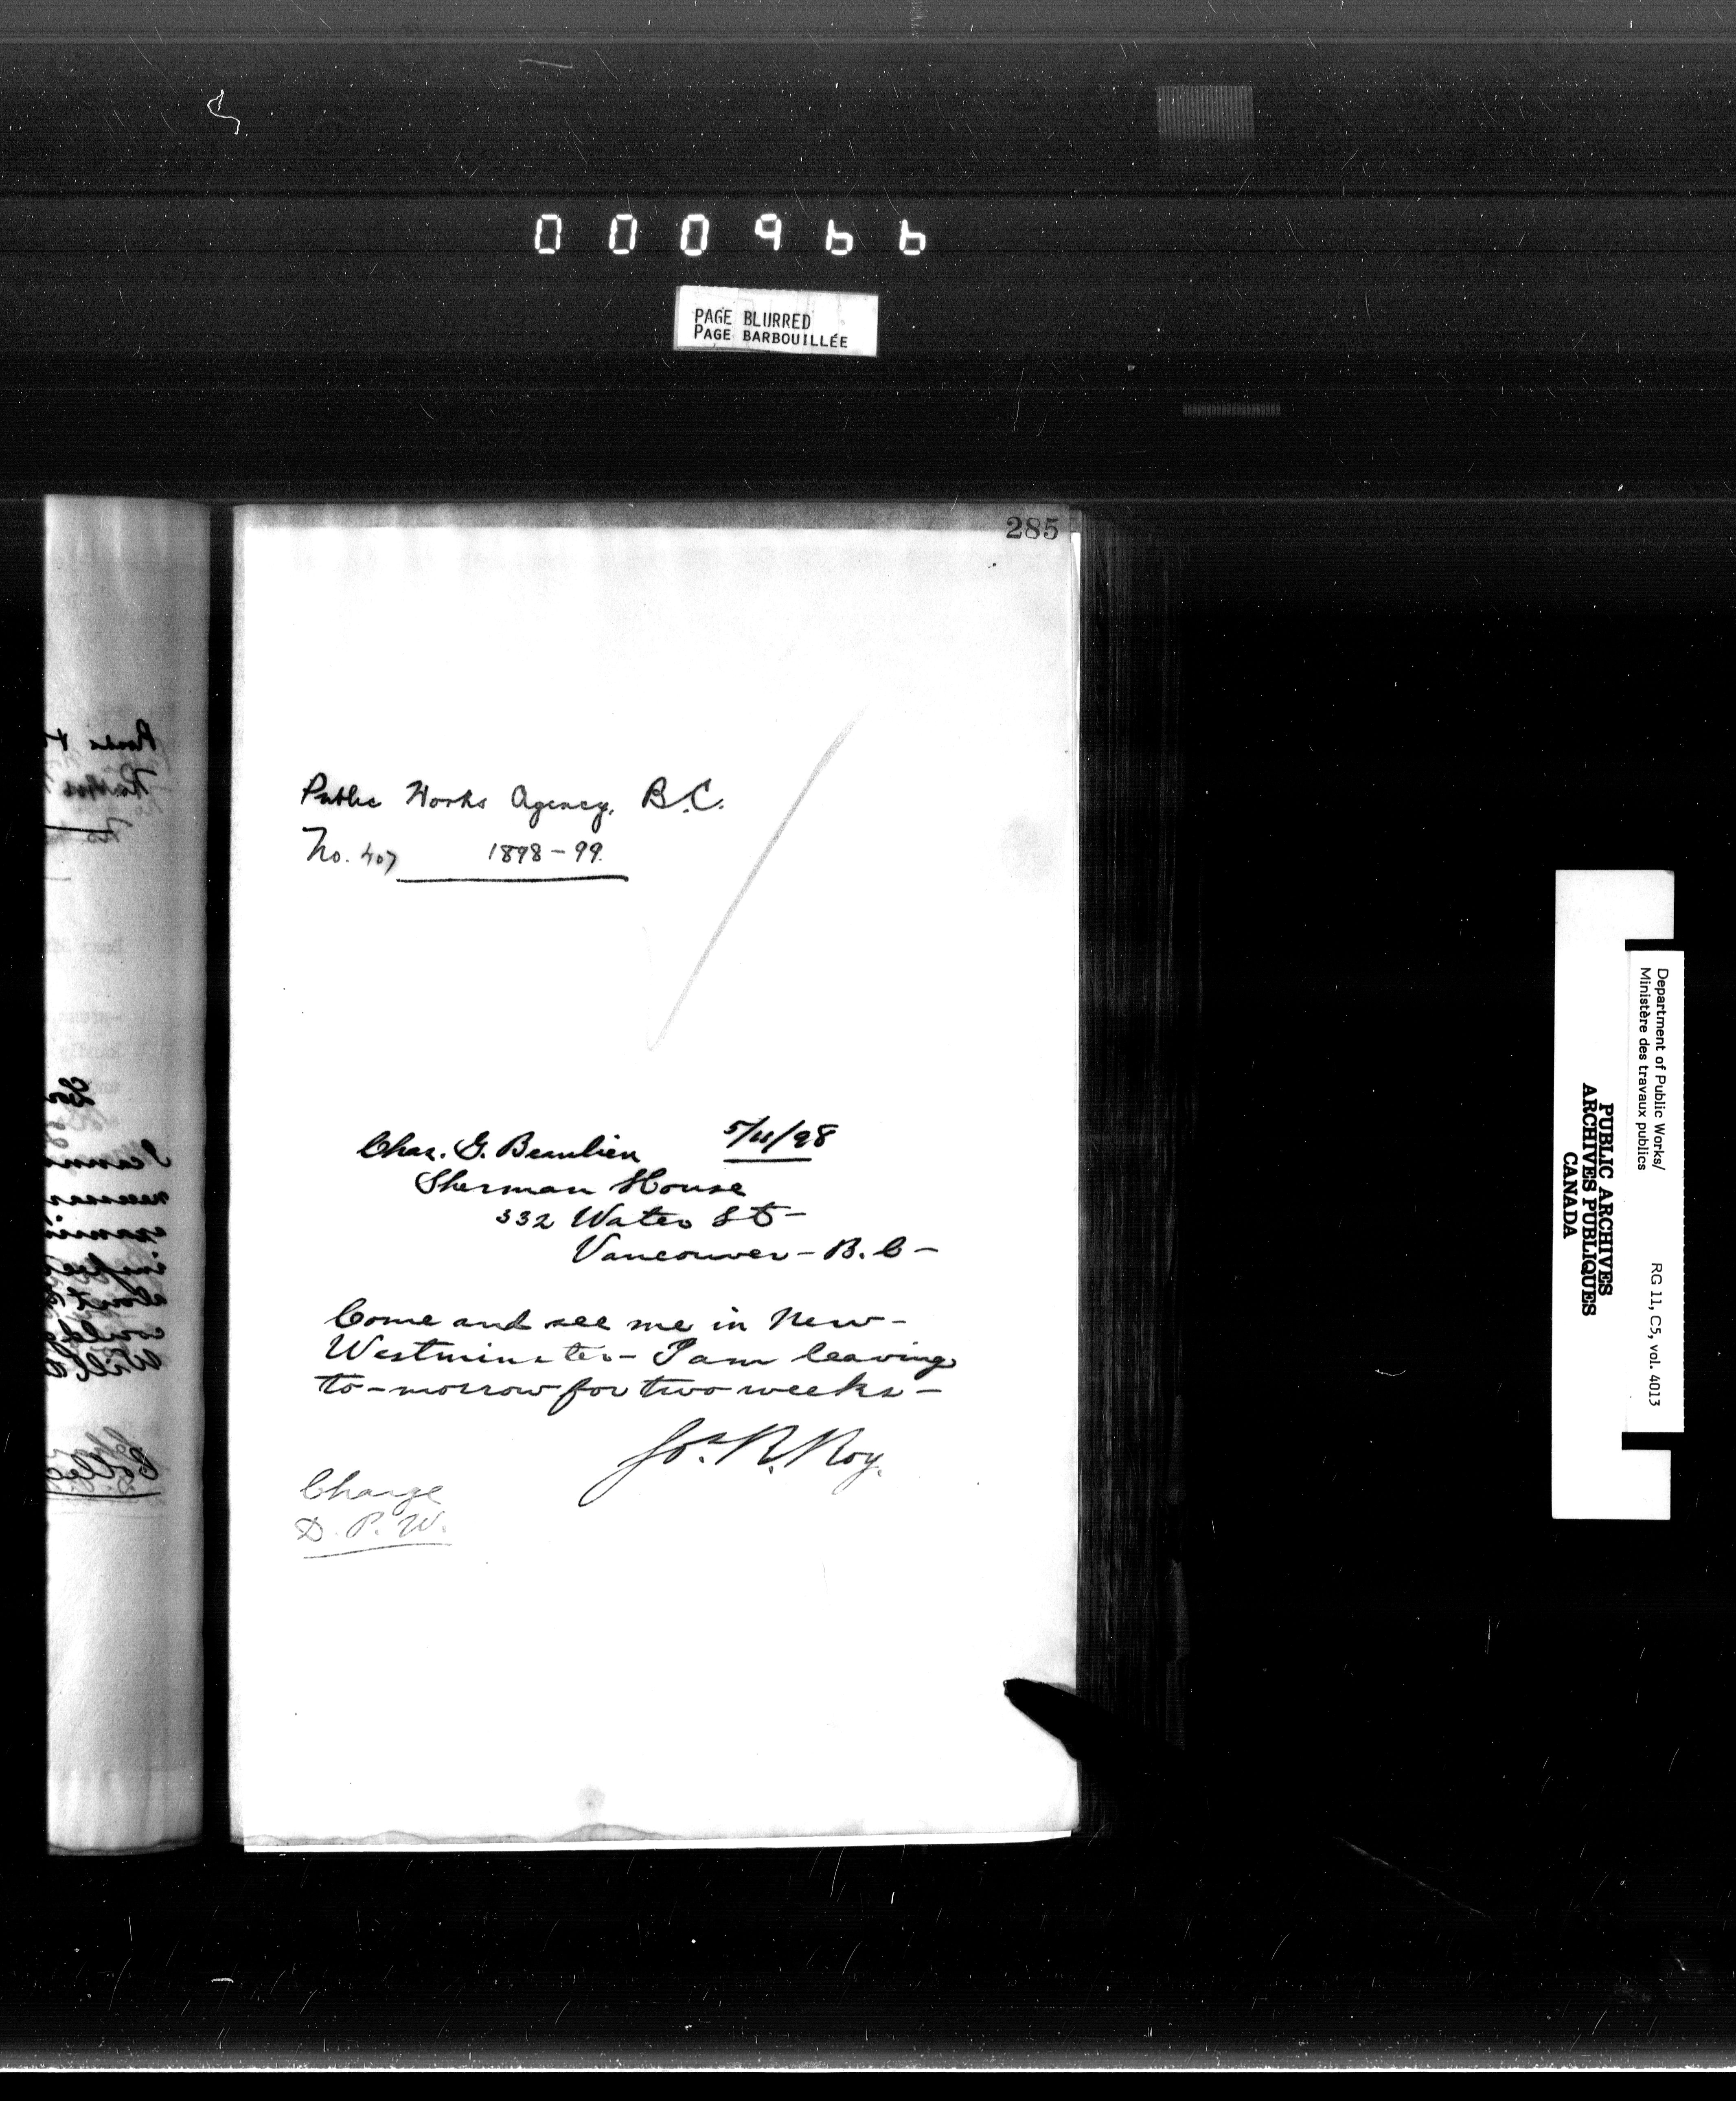 000966
PAGE BLURRED
PAGE BARBOUILLÉE
285
Public Works Agency, B.C.
No. 407 1898-99.
Chas. G. Beaulieu 5/11/98
Sherman House
332 Water St-
Vancouver - B.C-
Come and see me in New-
Westminster - I am leaving
to-morrow for two weeks -
Jos. R. Roy.
Charge
D.P.W.
Department of Public Works/
Ministère des travaux publics
RG 11, C5, vol. 4013
PUBLIC ARCHIVES
ARCHIVES PUBLIQUES
CANADA